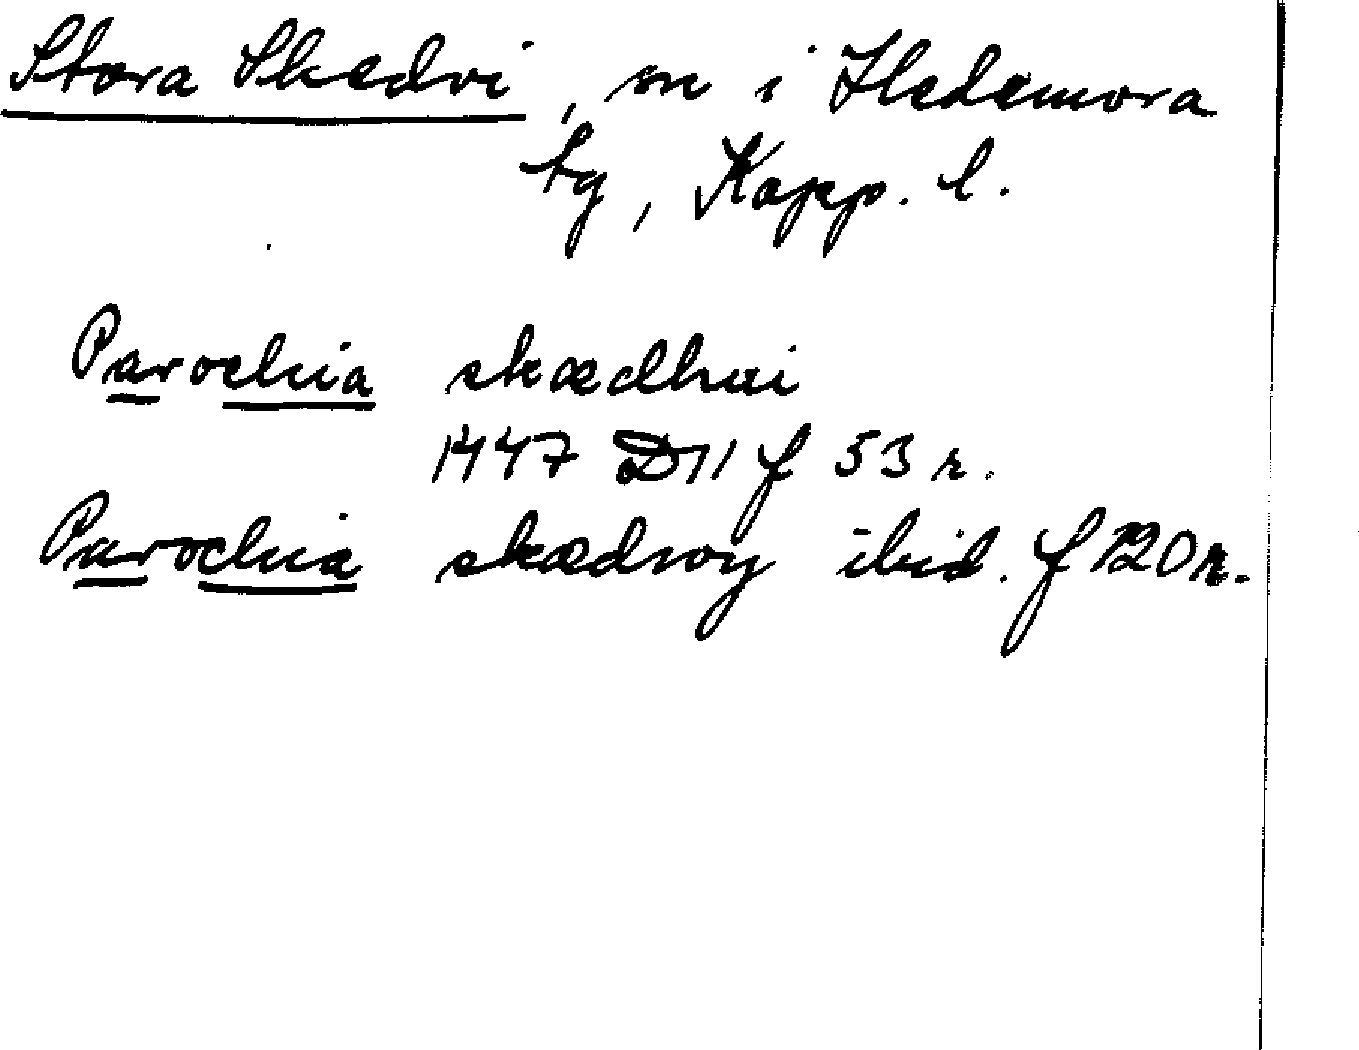 Stora Skedvi, sn i Hedemora
tg, Kopp. l.
Parochia skædhui
1447 D11 f 53 r.
Parochia skædwy ibid. f 120 r.